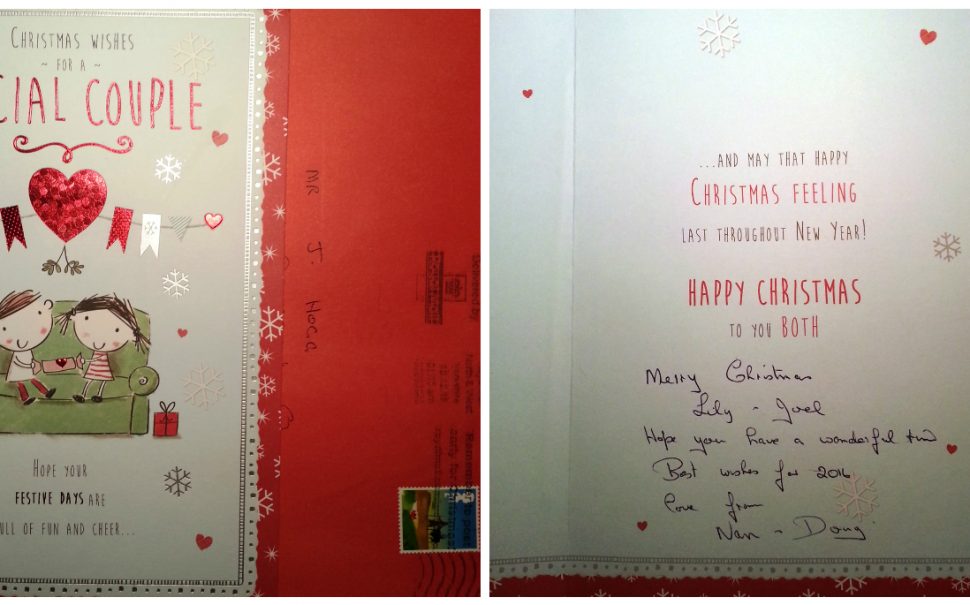 CHRISTMAS WISHES
~ FOR A ~
CIAL COUPLE
HOPE YOUR
FESTIVE DAYS ARE
ULL OF FUN AND CHEER...
MR J. HOGG
Delivered by
...AND MAY THAT HAPPY
CHRISTMAS FEELING
LAST THROUGHOUT NEW YEAR!
HAPPY CHRISTMAS
TO YOU BOTH
Merry Christmas
Lily - Joel
Hope you have a wonderful time
Best wishes for 2014
love from
Nan - Doug